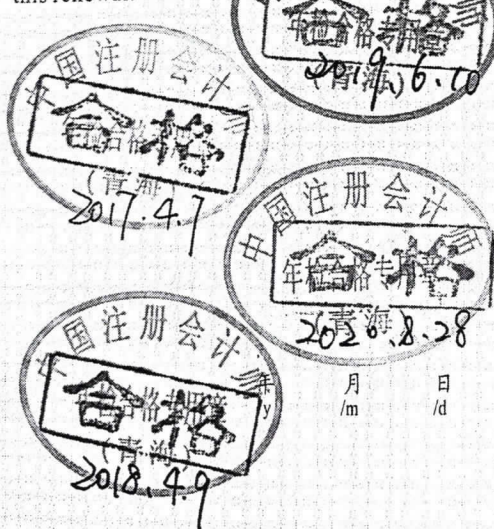 this renewal
年检合格专用章
合格
(青海)
2019.6.10
中国注册会计师
年检合格专用章
合格
(青海)
2017.4.7
中国注册会计师
年检合格专用章
合格
(青海)
2020.8.28
中国注册会计师
年检合格专用章
合格
(青海)
2018.4.9
年 月 日
y /m /d